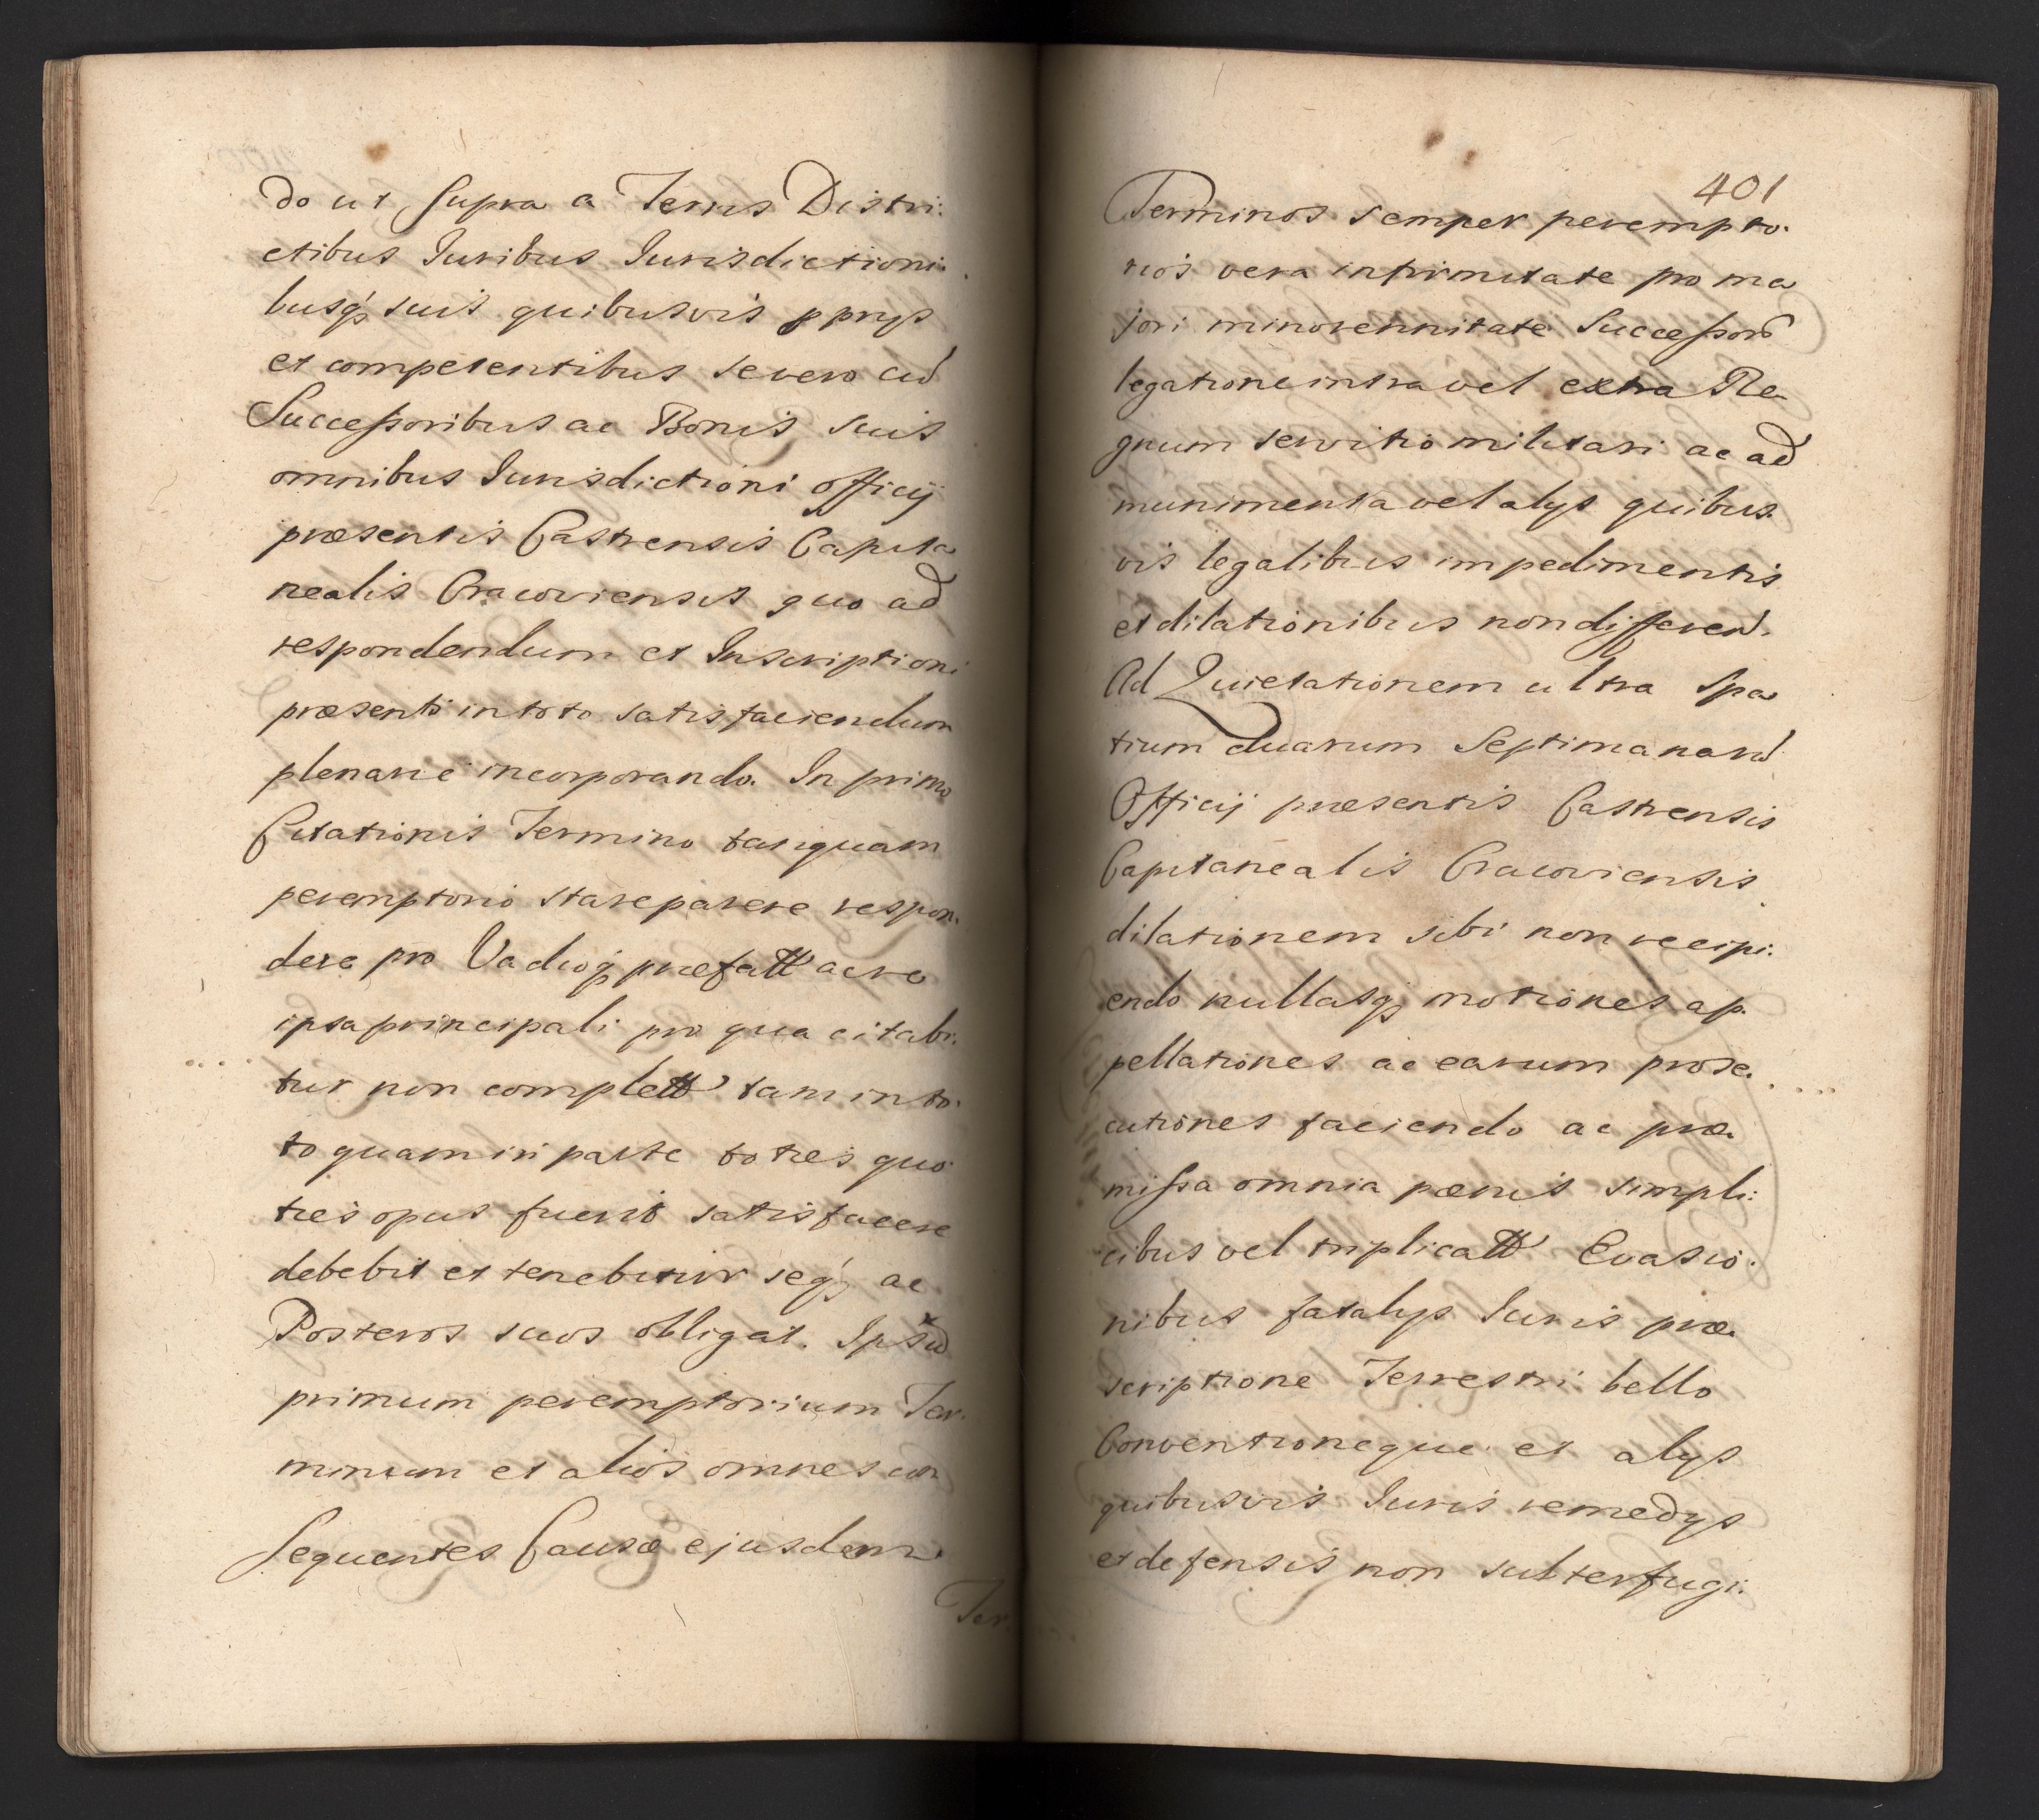 do ut supra a Terris Distri:
ctibus Iuribus Iurisdictioni:
busq; suis quibusvis pprijs
et competentibus se vero cu
Successoribus ac Bonis suis
omnibus Iurisdictioni officij
præsentis Castrensis Capita
nealis Cracoviensis quo ad
respondendum et Inscriptioni
præsenti in toto satisfaciendum
plenarie incorporando. In primo
Citationis Termino tanquam
peremptorio stare parere respon.
dere pro Vadioq; præfatt ac re
ipsa principali pro qua citabi:
tur non complett tam in to.
to quam in parte toties quo
ties opus fuerit satisfacere
debebit et tenebitur seq; ac
Posteros suos obligat. Ipsu
primum peremptorium Ter.
minum et alios omnes con
sequentes Causæ ejusdem
Ter.
401
Terminos semper perempto.
rios vera infirmitate pro ma
jori minorennitate Successoru
legatione intra vel extra Re
gnum servitio militari ac ad
munimenta vel alijs quibus.
vis legalibus impedimentis
et dilationibus non differen.
Ad Quietationem ultra spa
tium duarum Septimanaru
Officij præsentis Castrensis
Capitanealis Cracoviensis
dilationem sibi non recipi.
endo nullasq; motiones ap.
pellationes ac earum prose.
cutiones faciendo ac præ.
missa omnia pænis simpli:
cibus vel triplicatt Evasio.
nibus fatalijs Iuris præ.
scriptione Terrestri bello
Conventioneque et alijs
quibusvis Iuris remedijs
et defensis non subterfugi: